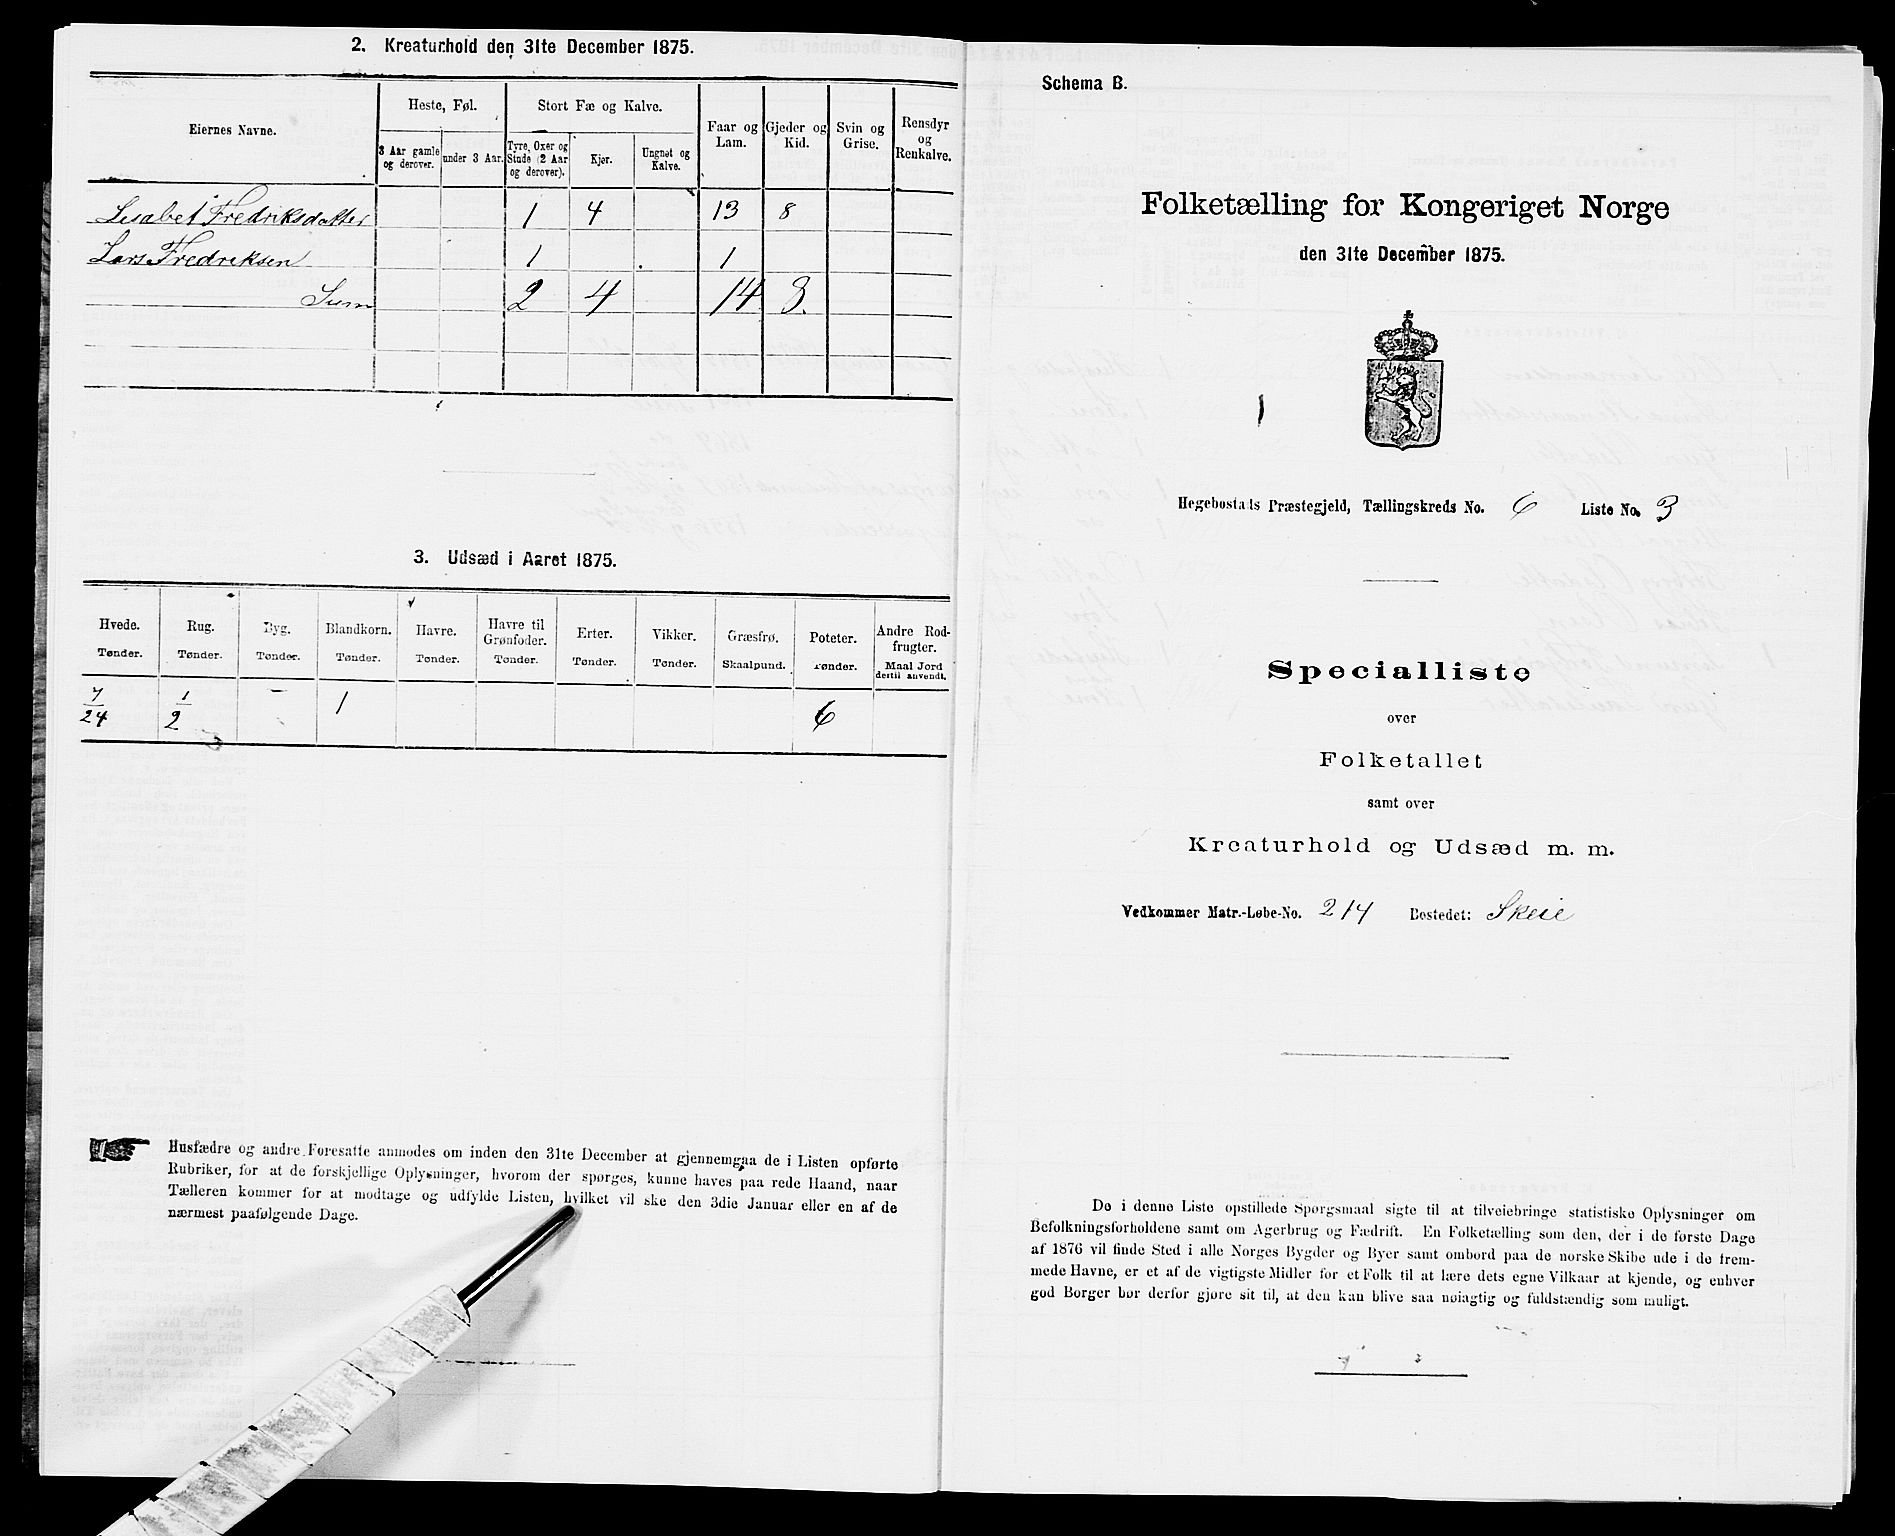 2. Kreaturhold den 31te December 1875.
Eiernes Navne.
Heste, Føl.
Stort Fæ og Kalve.
Faar og Lam.
Gjeder og Kid.
Svin og Grise.
Rensdyr og Renkalve.
3 Aar gamle og derover.
under 3 Aar.
Tyre, Oxer og Stude (2 Aar og derover).
Kjør.
Ungnøt og Kalve.
Lisabet Fredriksdatter 1 4 13 8
Lars Fredriksen 1 1
Sum 2 4 14 8.
3. Udsæd i Aaret 1875.
Hvede. Rug. Byg. Blandkorn. Havre. Havre til Grønfoder. Erter. Vikker. Græsfrø. Poteter. Andre Rodfrugter.
Tønder. Tønder. Tønder. Tønder. Tønder. Tønder. Tønder. Tønder. Skaalpund. Tønder. Maal Jord dertil anvendt.
7/24 1/2 - 1 6
Husfædre og andre Foresatte anmodes om inden den 31te December at gjennemgaa de i Listen opførte
Rubriker, for at de forskjellige Oplysninger, hvorom der spørges, kunne haves paa rede Haand, naar
Tælleren kommer for at modtage og udfylde Listen, hvilket vil ske den 3die Januar eller en af de
nærmest paafølgende Dage.
Schema B.
Folketælling for Kongeriget Norge
den 31te December 1875.
Hegebostads Præstegjeld, Tællingskreds No. 6 Liste No. 3
Specialliste
over
Folketallet
samt over
Kreaturhold og Udsæd m. m.
Vedkommer Matr.-Løbe-No. 214 Bostedet: Skeie
De i denne Liste opstillede Spørgsmaal sigte til at tilveiebringe statistiske Oplysninger om
Befolkningsforholdene samt om Agerbrug og Fædrift. En Folketælling som den, der i de første Dage
af 1876 vil finde Sted i alle Norges Bygder og Byer samt ombord paa de norske Skibe ude i de frem-
mede Havne, er et af de vigtigste Midler for et Folk til at lære dets egne Vilkaar at kjende, og enhver
god Borger bør derfor gjøre sit til, at den kan blive saa nøiagtig og fuldstændig som muligt.